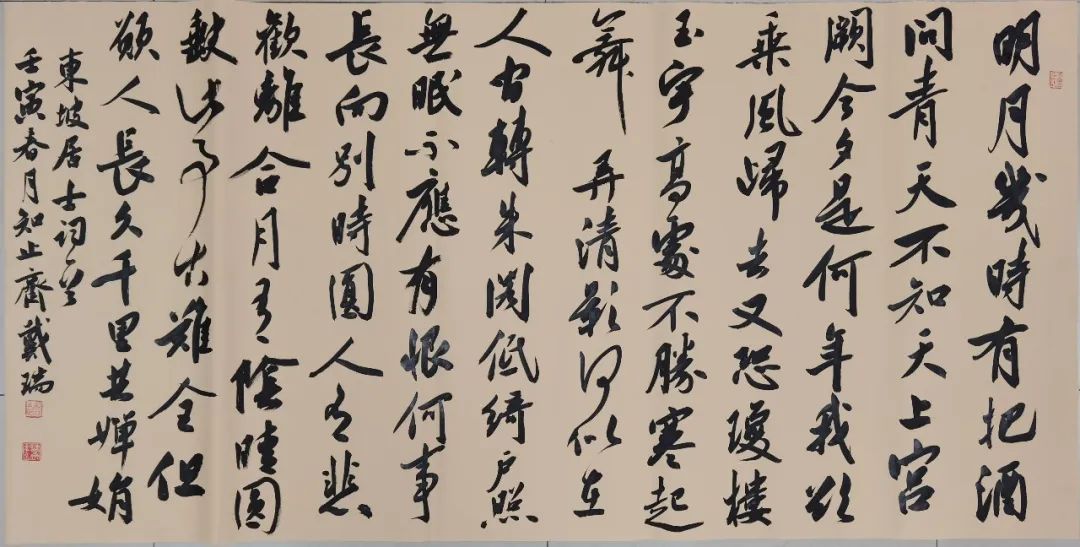 明月幾時有把酒
問青天不知天上宮
闕今夕是何年我欲
乘風歸去又恐瓊樓
玉宇高處不勝寒起
舞弄清影何似在
人間轉朱閣低綺戶照
無眠不應有恨何事
長向別時圓人有悲
歡離合月有陰晴圓
缺此事古難全但
願人長久千里共嬋娟
東坡居士詞一首
壬寅春月知止齋戴瑞